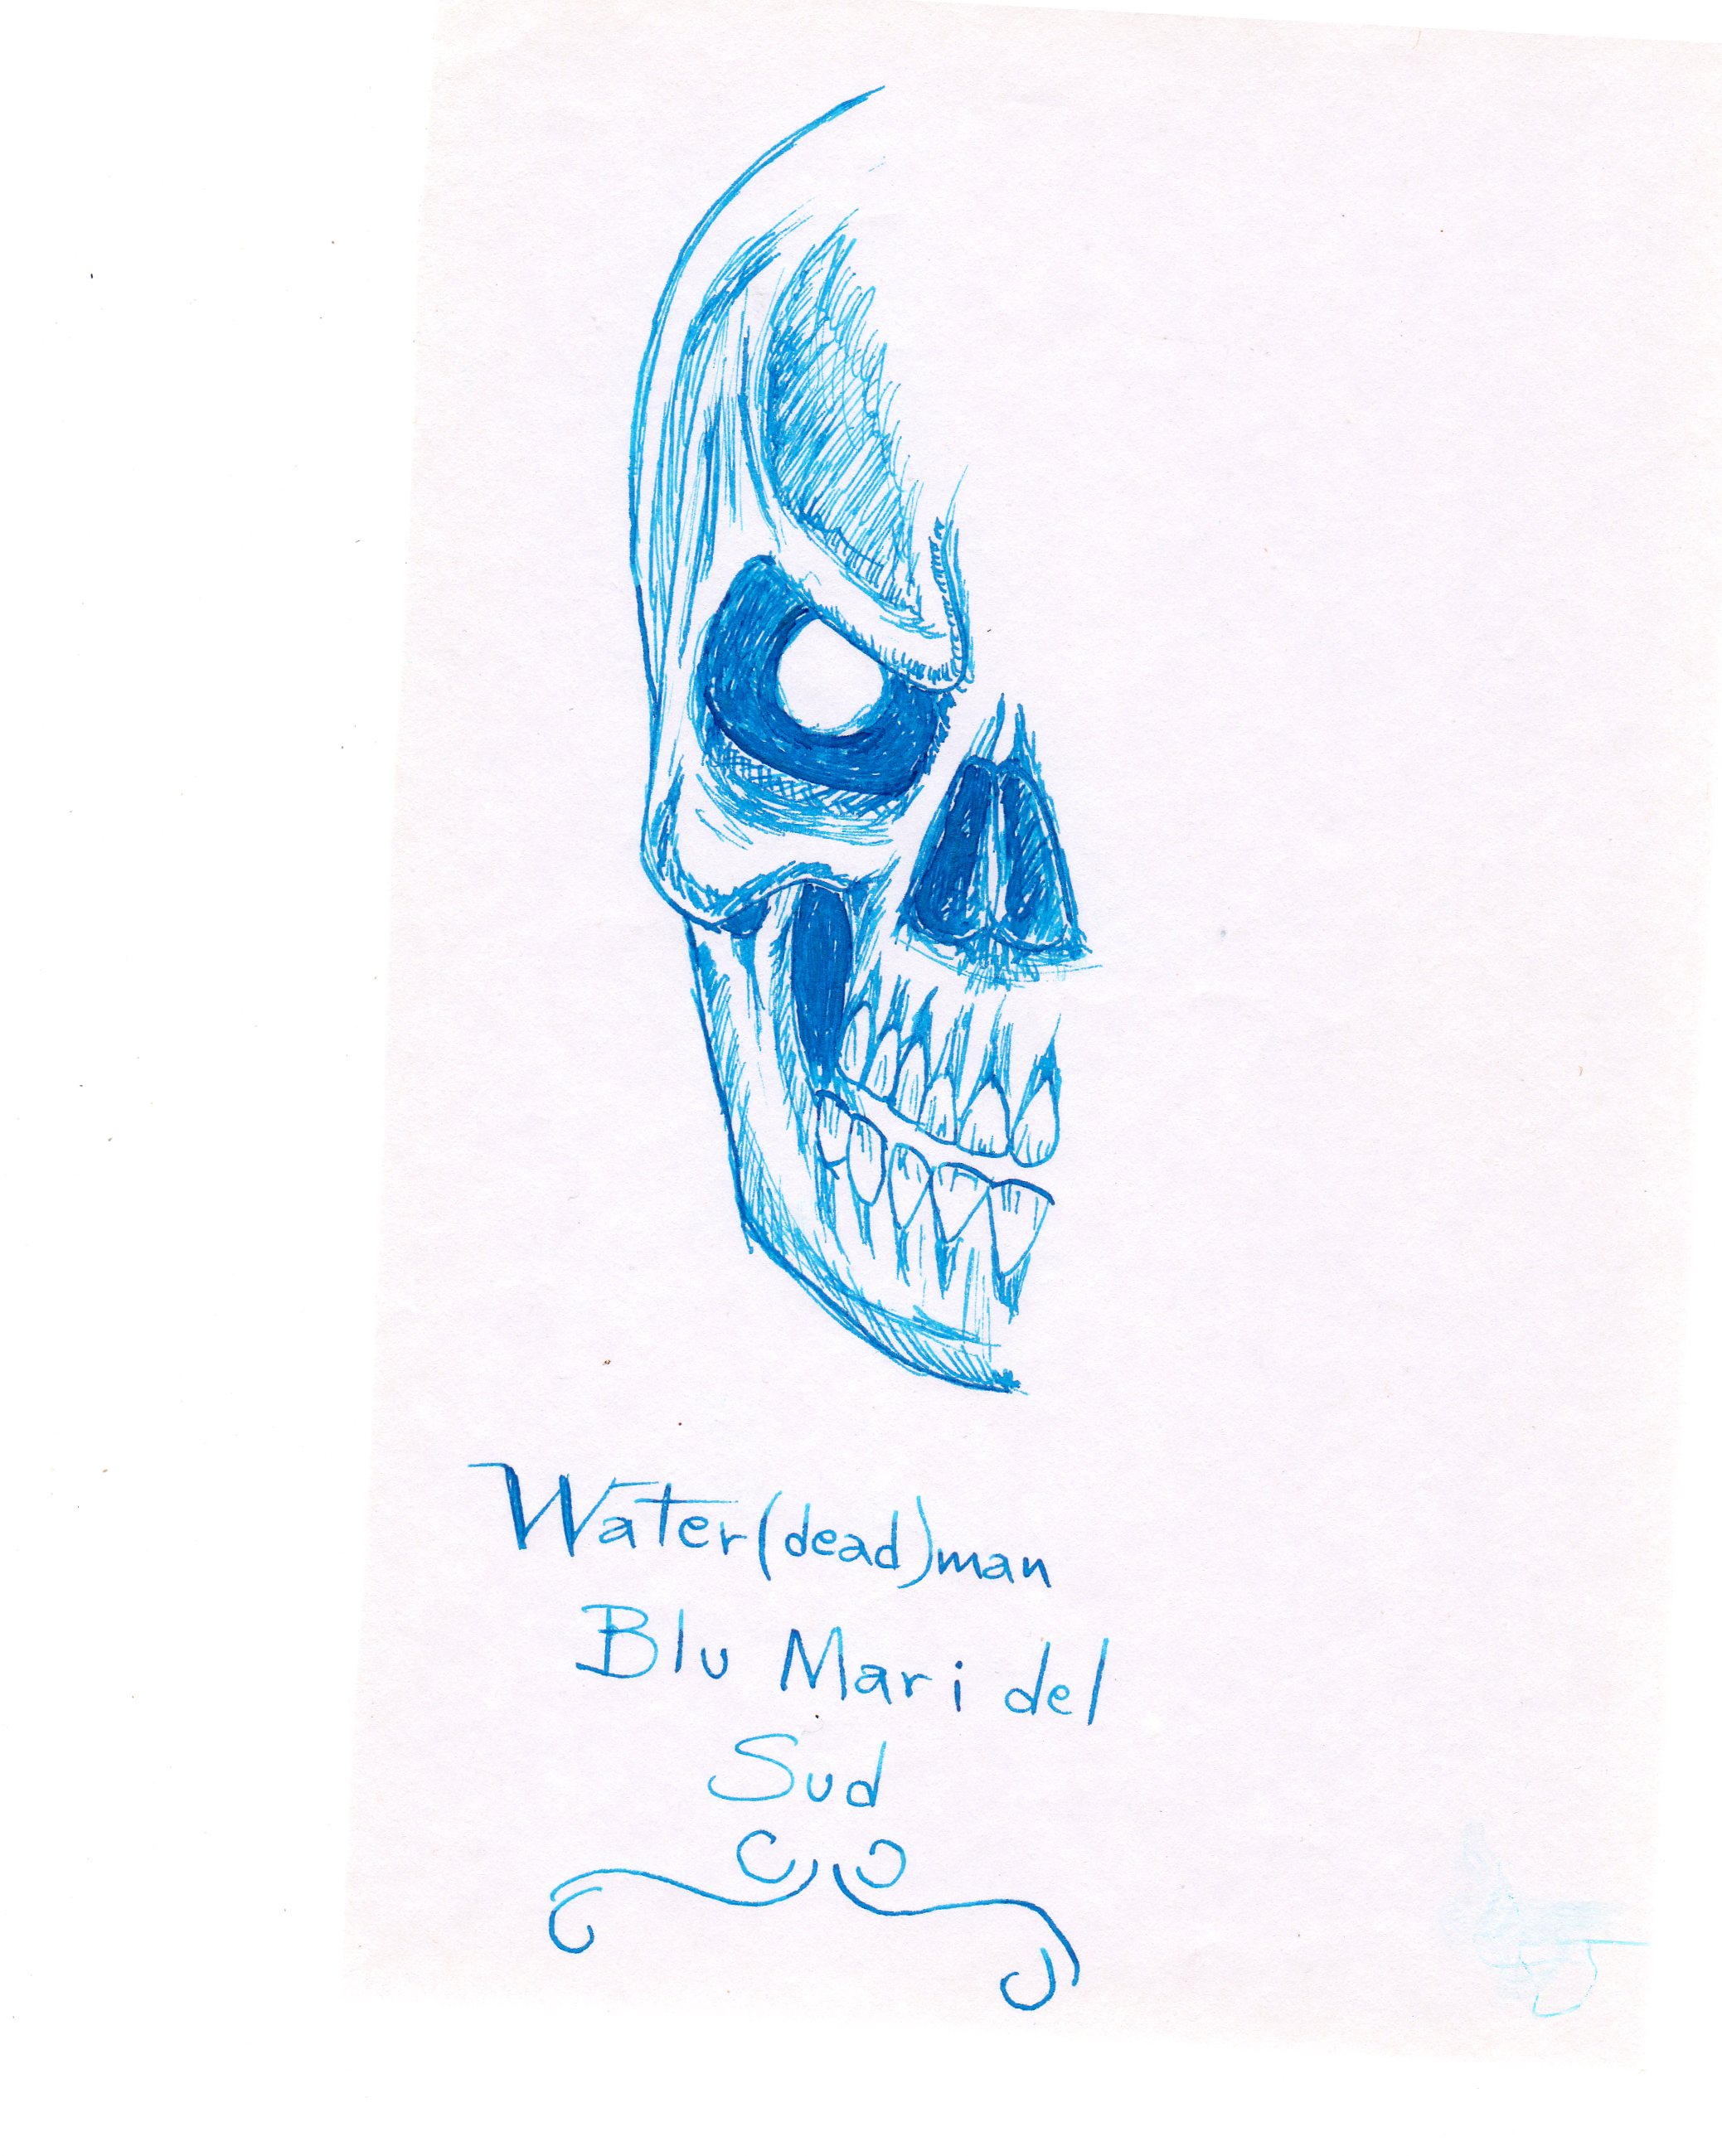 Water(dead)man
Blu Mari del
Sud